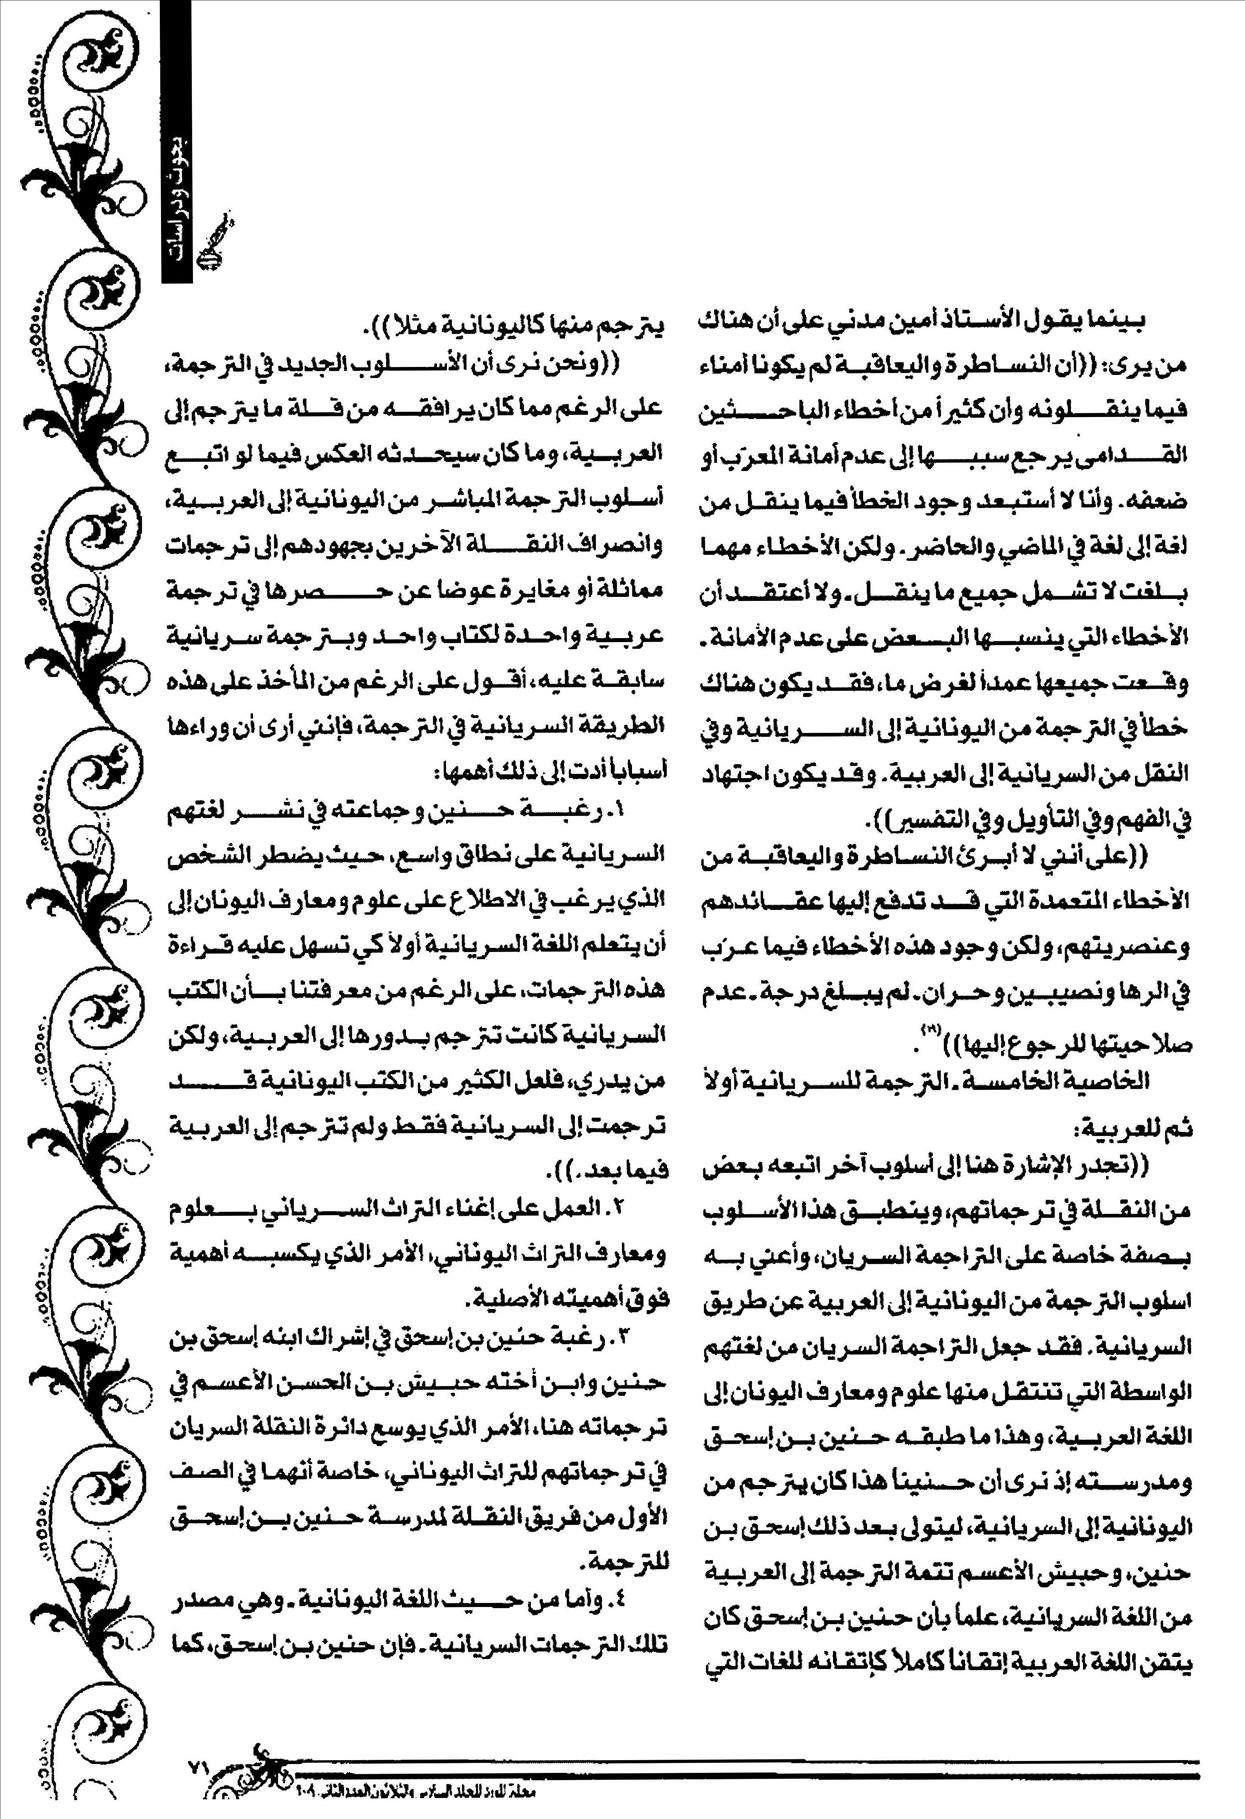 بحوث ودراسات
بينما يقول الأستاذ أمين مدني على أن هناك
من يرى: ((أن النساطرة واليعاقبة لم يكونا أمناء
فيما ينقلونه وأن كثيراً من أخطاء الباحثين
القدامى يرجع سببها إلى عدم أمانة المعرّب أو
ضعفه. وأنا لا أستبعد وجود الخطأ فيما ينقل من
لغة إلى لغة في الماضي والحاضر. ولكن الأخطاء مهما
بلغت لا تشمل جميع ما ينقل. ولا أعتقد أن
الأخطاء التي ينسبها البعض على عدم الأمانة.
وقعت جميعها عمداً لغرض ما، فقد يكون هناك
خطأ في الترجمة من اليونانية إلى السريانية وفي
النقل من السريانية إلى العربية. وقد يكون اجتهاد
في الفهم وفي التأويل وفي التفسير)).
((على أنني لا أبرئ النساطرة واليعاقبة من
الأخطاء المتعمدة التي قد تدفع إليها عقائدهم
وعنصريتهم، ولكن وجود هذه الأخطاء فيما عرّب
في الرها ونصيبين وحران. لم يبلغ درجة. عدم
صلاحيتها للرجوع إليها)).
الخاصية الخامسة. الترجمة للسريانية أولاً
ثم للعربية:
((تجدر الإشارة هنا إلى أسلوب آخر اتبعه بعض
من النقلة في ترجماتهم، وينطبق هذا الأسلوب
بصفة خاصة على التراجمة السريان، وأعني به
اسلوب الترجمة من اليونانية إلى العربية عن طريق
السريانية. فقد جعل التراجمة السريان من لغتهم
الواسطة التي تنتقل منها علوم ومعارف اليونان إلى
اللغة العربية، وهذا ما طبقه حنين بن إسحق
ومدرسته إذ نرى أن حنيناً هذا كان يترجم من
اليونانية إلى السريانية، ليتولى بعد ذلك إسحق بن
حنين، وحبيش الأعسم تتمة الترجمة إلى العربية
من اللغة السريانية، علماً بأن حنين بن إسحق كان
يتقن اللغة العربية إتقاناً كاملاً كإتقانه للغات التي
يترجم منها كاليونانية مثلا)).
((ونحن نرى أن الأسلوب الجديد في الترجمة،
على الرغم مما كان يرافقه من قلة ما يترجم إلى
العربية، وما كان سيحدثه العكس فيما لو اتبع
أسلوب الترجمة المباشر من اليونانية إلى العربية،
وانصراف النقلة الآخرين بجهودهم إلى ترجمات
مماثلة أو مغايرة عوضا عن حصرها في ترجمة
عربية واحدة لكتاب واحد وبترجمة سريانية
سابقة عليه، أقول على الرغم من المأخذ على هذه
الطريقة السريانية في الترجمة، فإنني أرى أن وراءها
أسباباً أدت إلى ذلك أهمها:
١. رغبة حنين وجماعته في نشر لغتهم
السريانية على نطاق واسع، حيث يضطر الشخص
الذي يرغب في الاطلاع على علوم ومعارف اليونان إلى
أن يتعلم اللغة السريانية أولاً كي تسهل عليه قراءة
هذه الترجمات، على الرغم من معرفتنا بأن الكتب
السريانية كانت تترجم بدورها إلى العربية، ولكن
من يدري، فلعل الكثير من الكتب اليونانية قد
ترجمت إلى السريانية فقط ولم تترجم إلى العربية
فيما بعد.)).
٢. العمل على إغناء التراث السرياني بعلوم
ومعارف التراث اليوناني، الأمر الذي يكسبه أهمية
فوق أهميته الأصلية.
٣. رغبة حنين بن إسحق في إشراك ابنه إسحق بن
حنين وابن أخته حبيش بن الحسن الأعسم في
ترجماته هنا، الأمر الذي يوسع دائرة النقلة السريان
في ترجماتهم للتراث اليوناني، خاصة أنهما في الصف
الأول من فريق النقلة لمدرسة حنين بن إسحق
للترجمة.
٤. وأما من حيث اللغة اليونانية. وهي مصدر
تلك الترجمات السريانية. فإن حنين بن إسحق، كما
مجلة المورد المجلد السادس والثلاثون العدد الثاني ٢٠٠٩
٧١